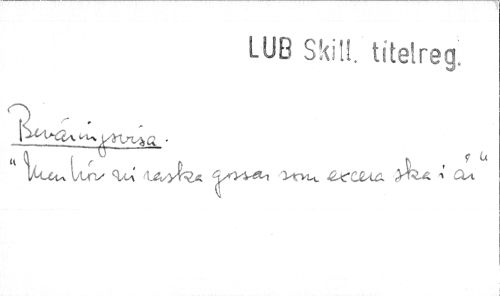 LUB Skill. titelreg.
Beväringsvisa.
"Men hör ni raska gossar som excera ska i år"